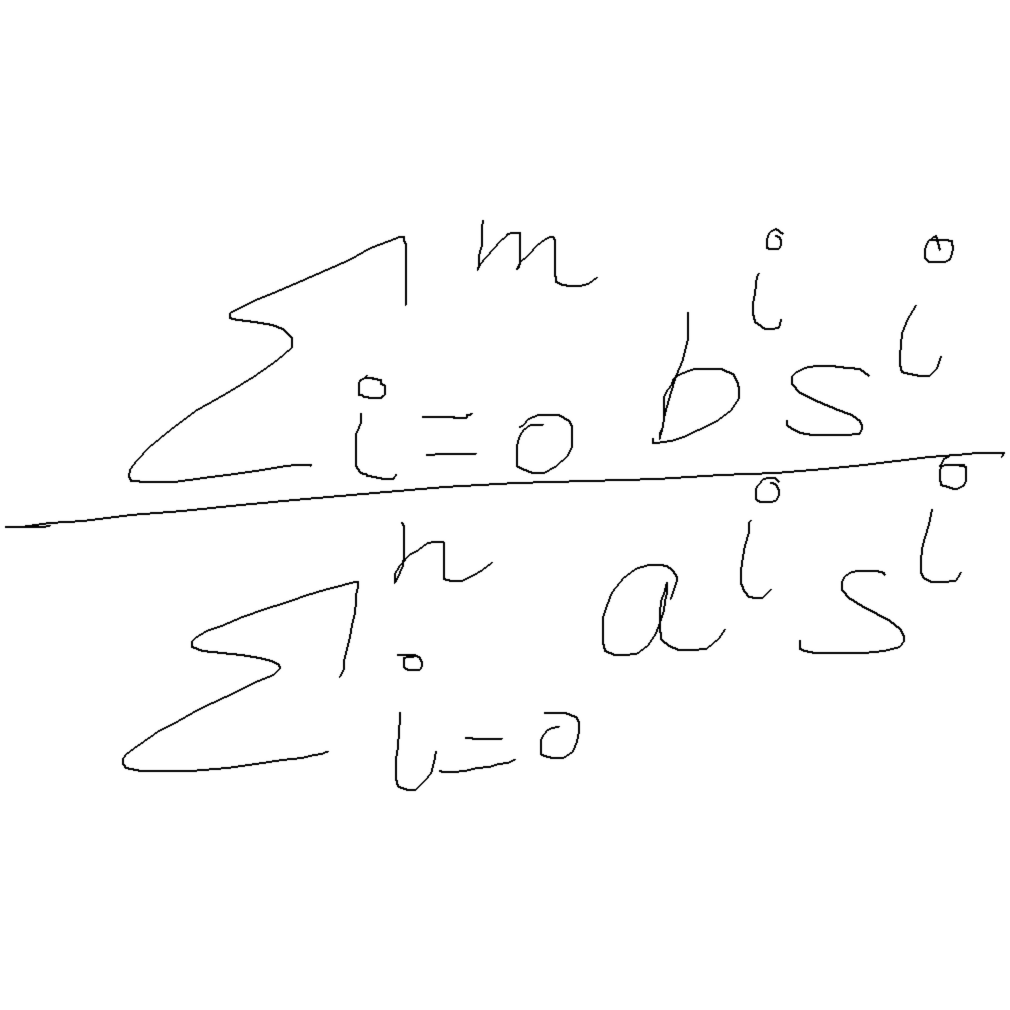 \frac{\sum_{i=0}^{m} b^{i} s^{i}}{\sum_{i=0}^{n} a^{i} s^{i}}